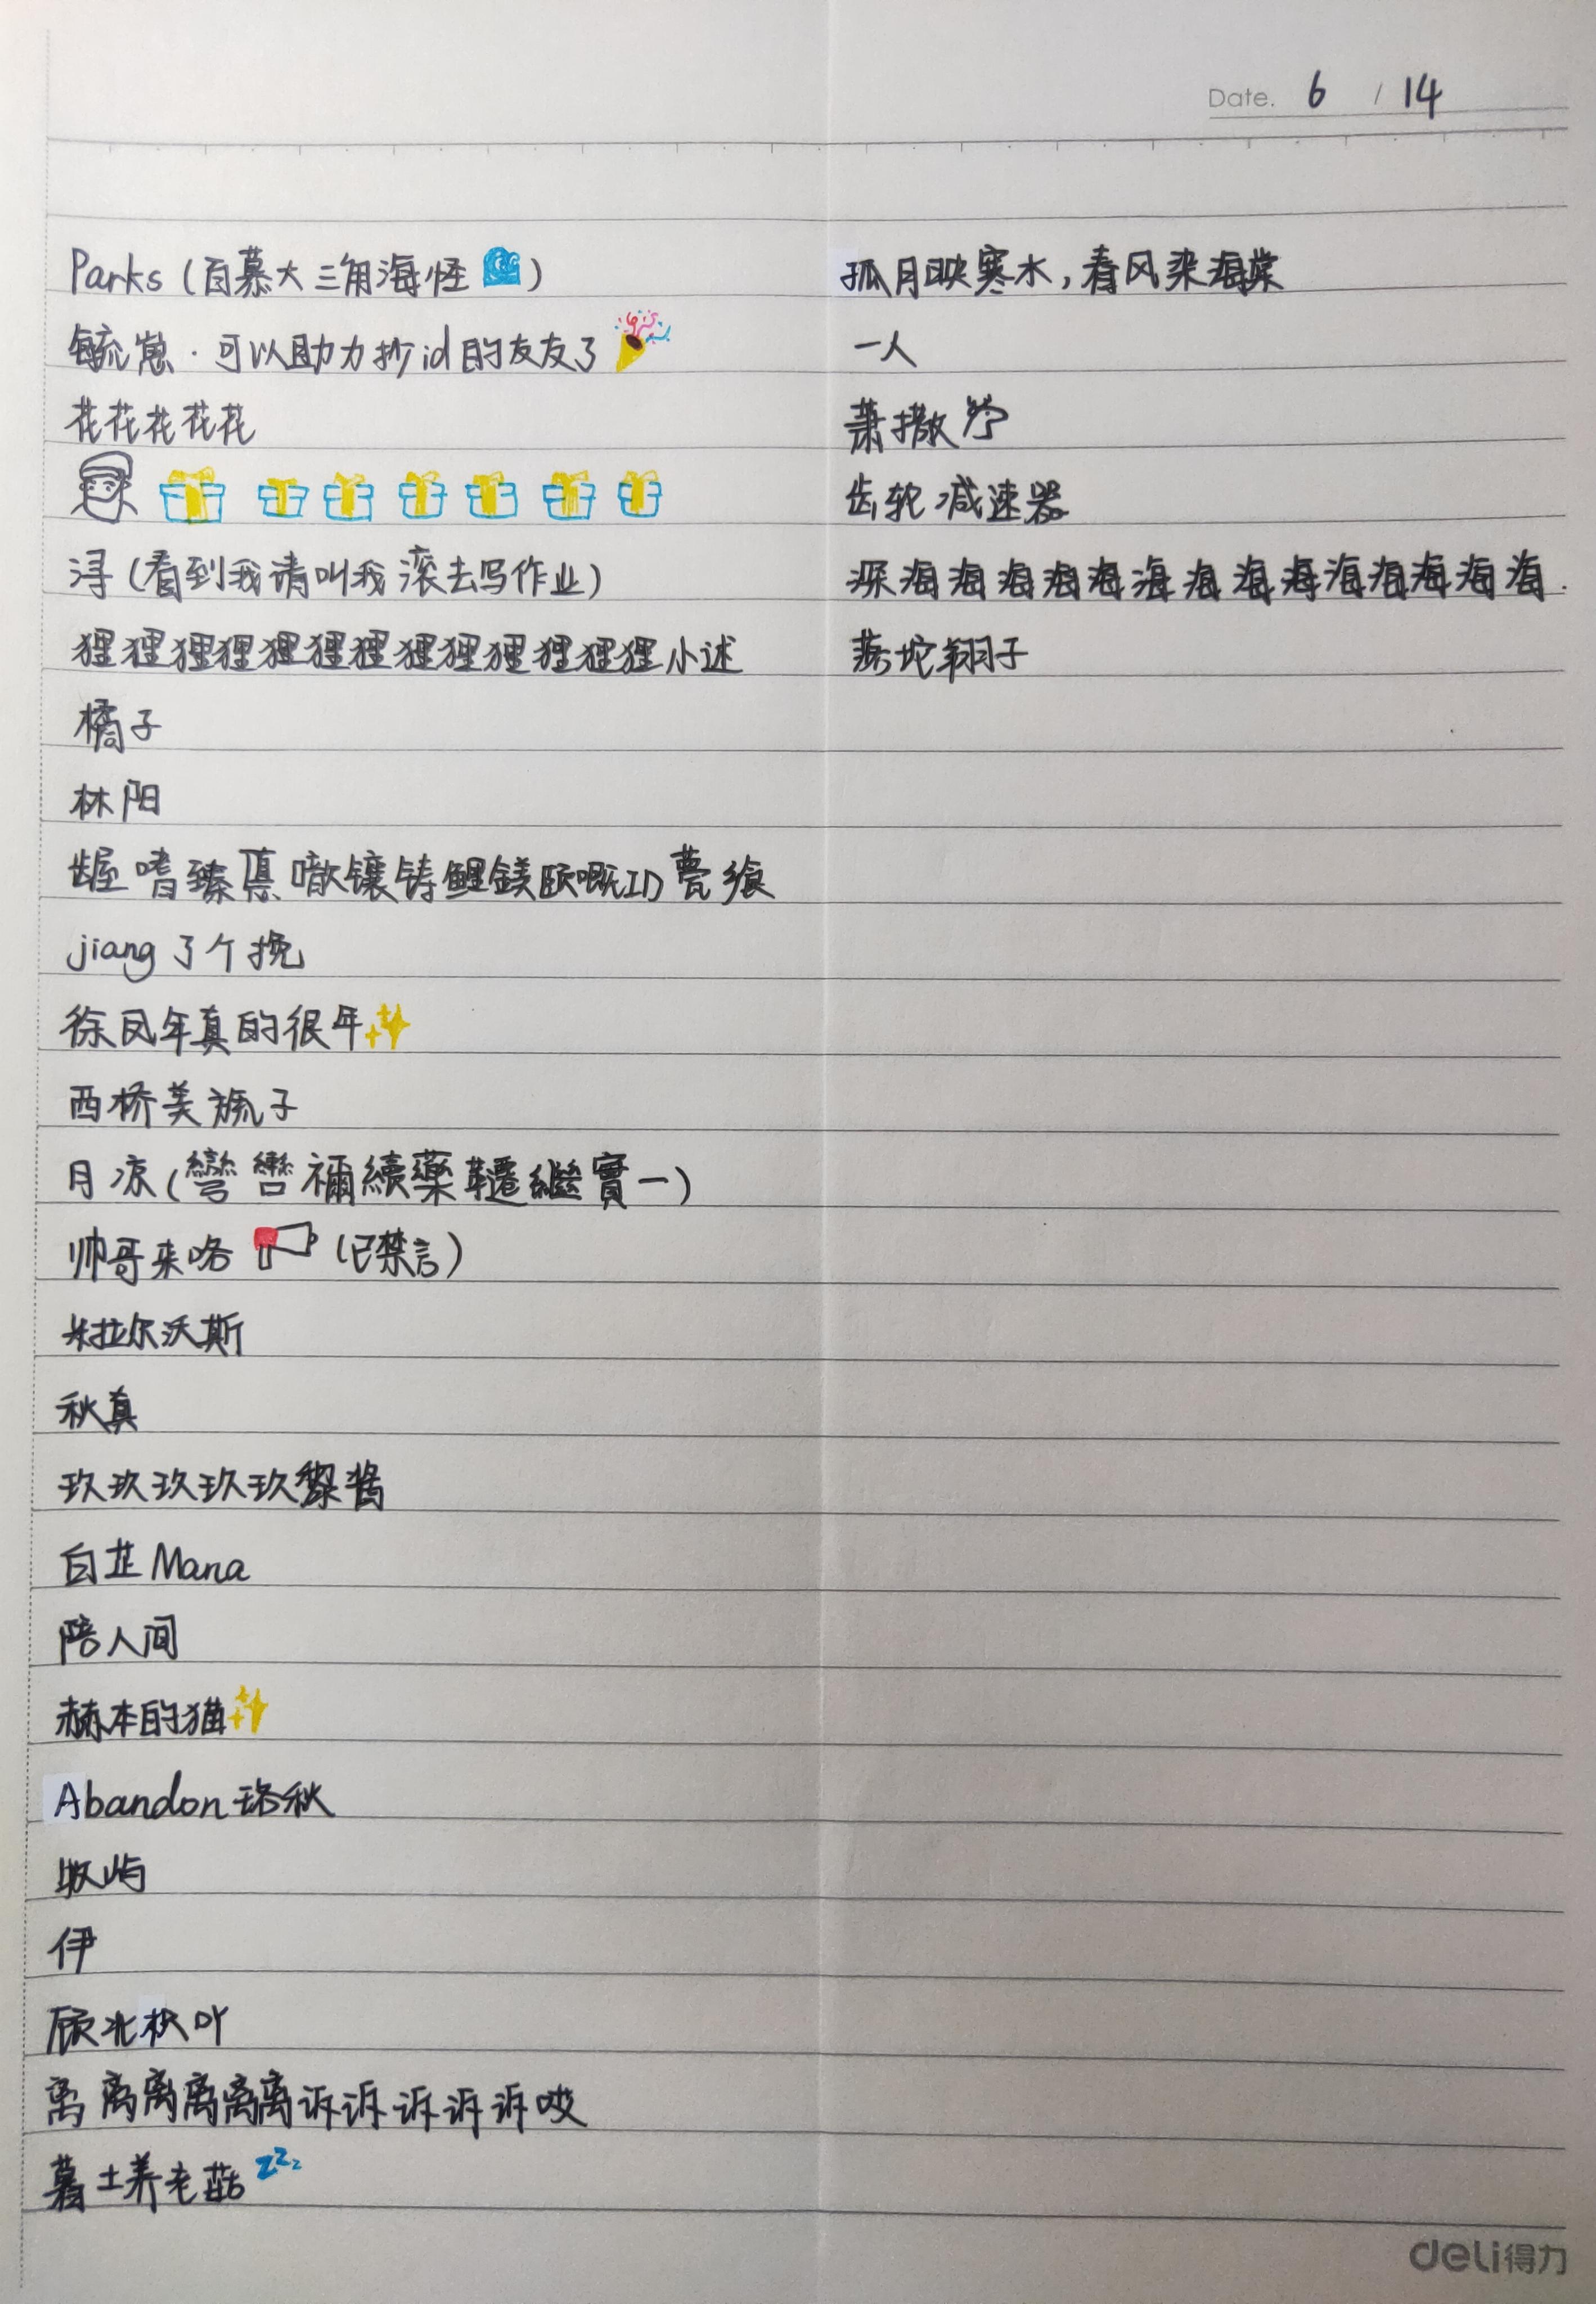 Date. 6 / 14
Parks (百慕大三角海怪🌊)
毓崽·可以助力抄id的友友了🎉
花花花花花
🎅🎁🎁🎁🎁🎁🎁🎁
浔(看到我请叫我滚去写作业)
狸狸狸狸狸狸狸狸狸狸狸狸狸小述
橘子
林阳
龌嗜臻噷镶铸鲤鎂嘅ID甍飨
jiang了个挽
徐凤年真的很年✨
西桥美旒子
月凉(彎嚳禰續藥韆繼實一)
帅哥来咯📢(已禁言)
米拉尔沃斯
秋真
玖玖玖玖玖黎酱
白芷Mana
陪人间
赫本的猫✨
Abandon珞秋
屿
伊
顾北枫吖
离离离离离离诉诉诉诉诉吱
暮土养老菇💤
孤月映寒水,春风染海棠
一人
萧撒
齿轮减速器
深海海海海海海海海海海海海海海.
坨翔子
deli得力